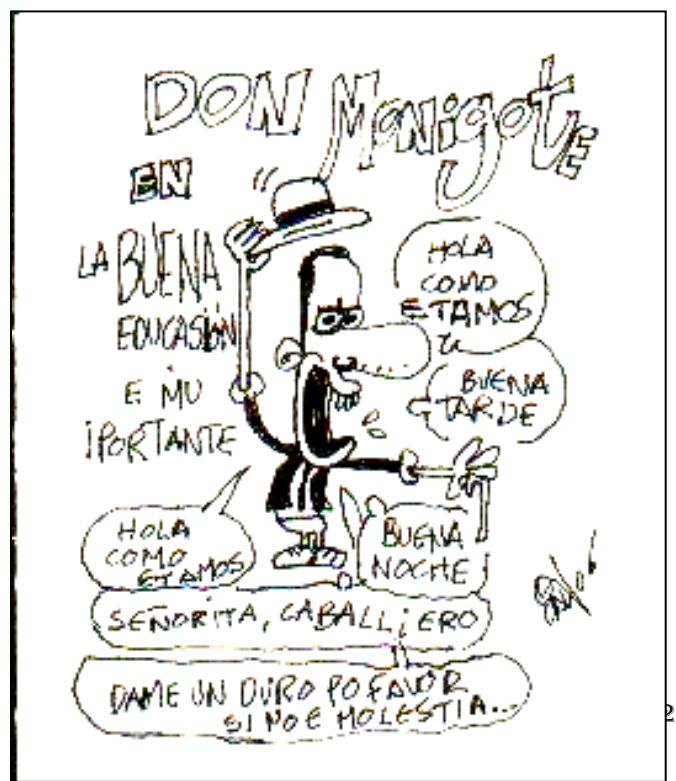 DON MONIGOTE
EN
LA BUENA
EDUCASIÓN
E MU
IPORTANTE
HOLA
COMO
ETAMOS
BUENA
TARDE
HOLA
COMO
ETAMOS
BUENA
NOCHE
SEÑORITA, CABALLIERO
DAME UN DURO PO FAVOR
SI NO E MOLESTIA...
2